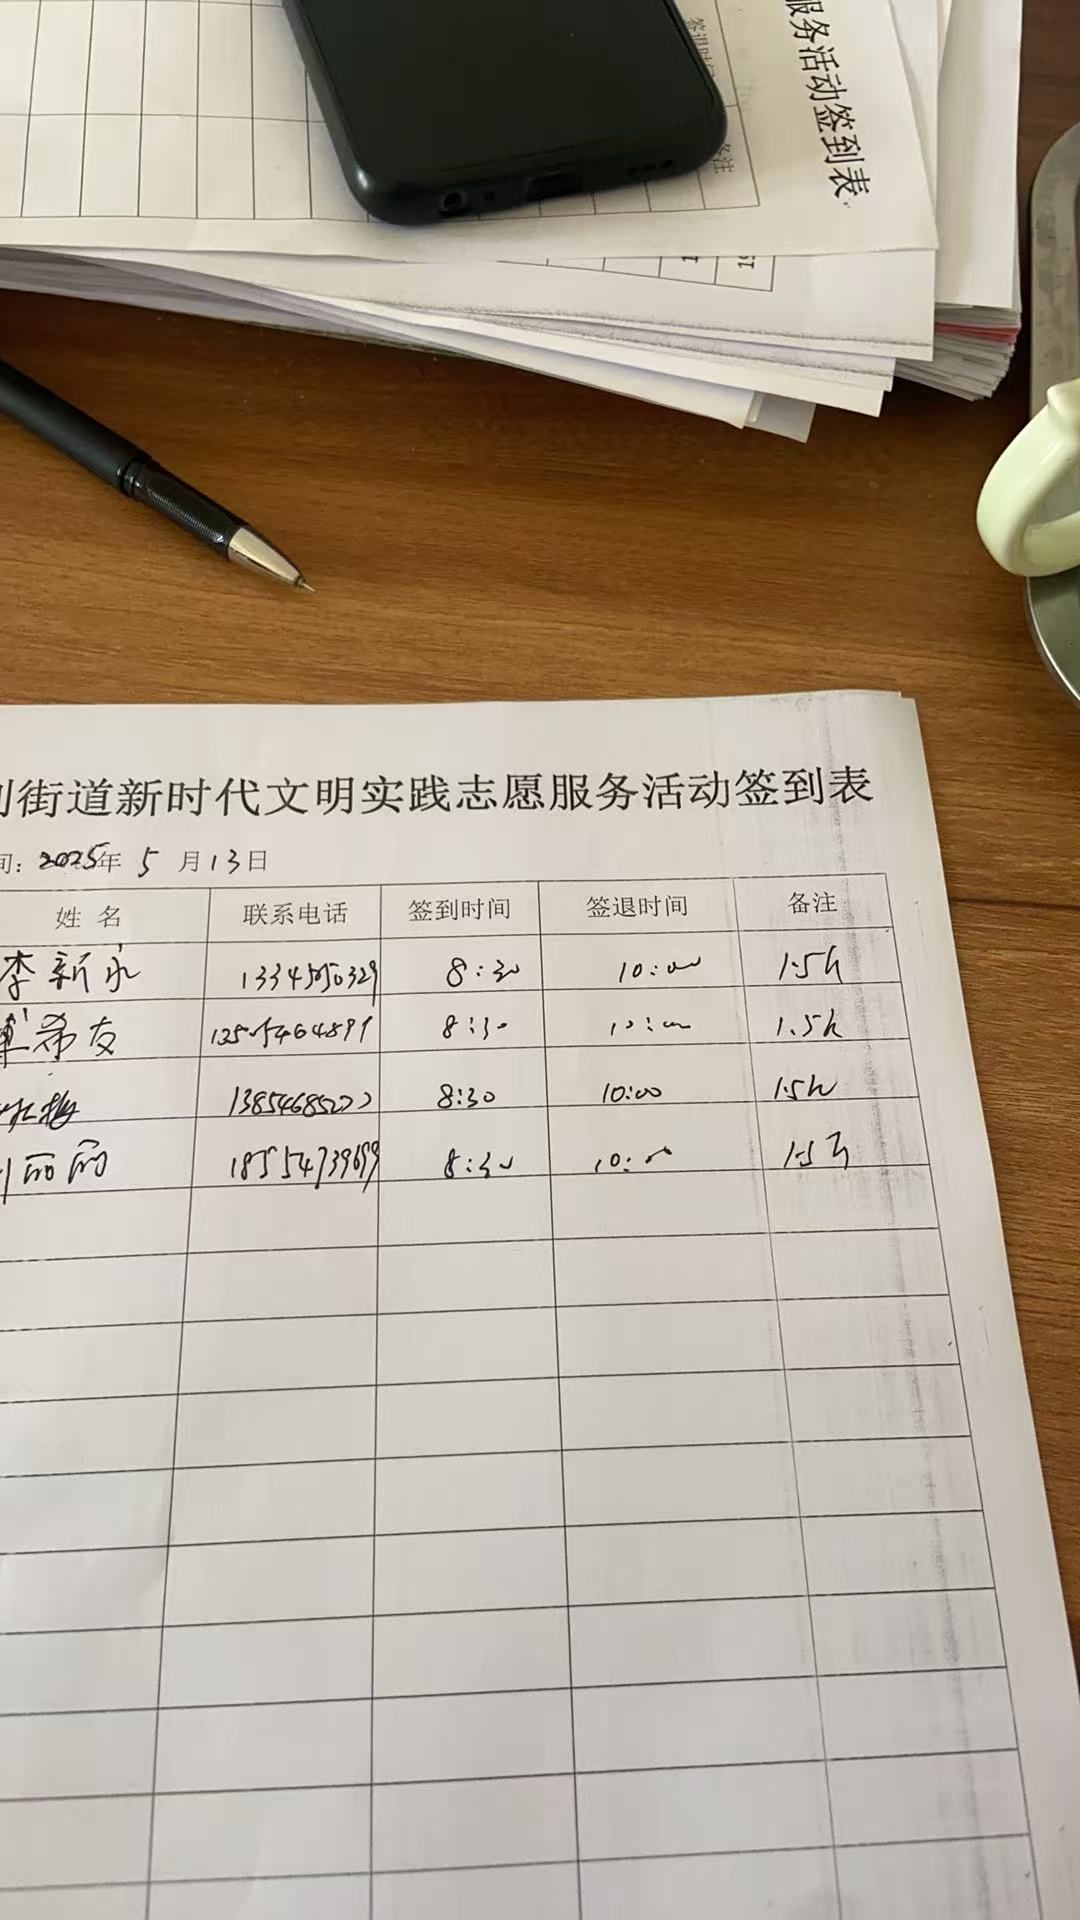 服务活动签到表
签退时间
备注
15
街道新时代文明实践志愿服务活动签到表
间：2025年 5 月13日
姓 名 联系电话 签到时间 签退时间 备注
李新永 13345050329 8:30 10:00 1.5h
希友 8:30 10:00 1.5h
梅 8:30 10:00 1.5h
丽丽 18554739699 8:30 10:00 1.5h